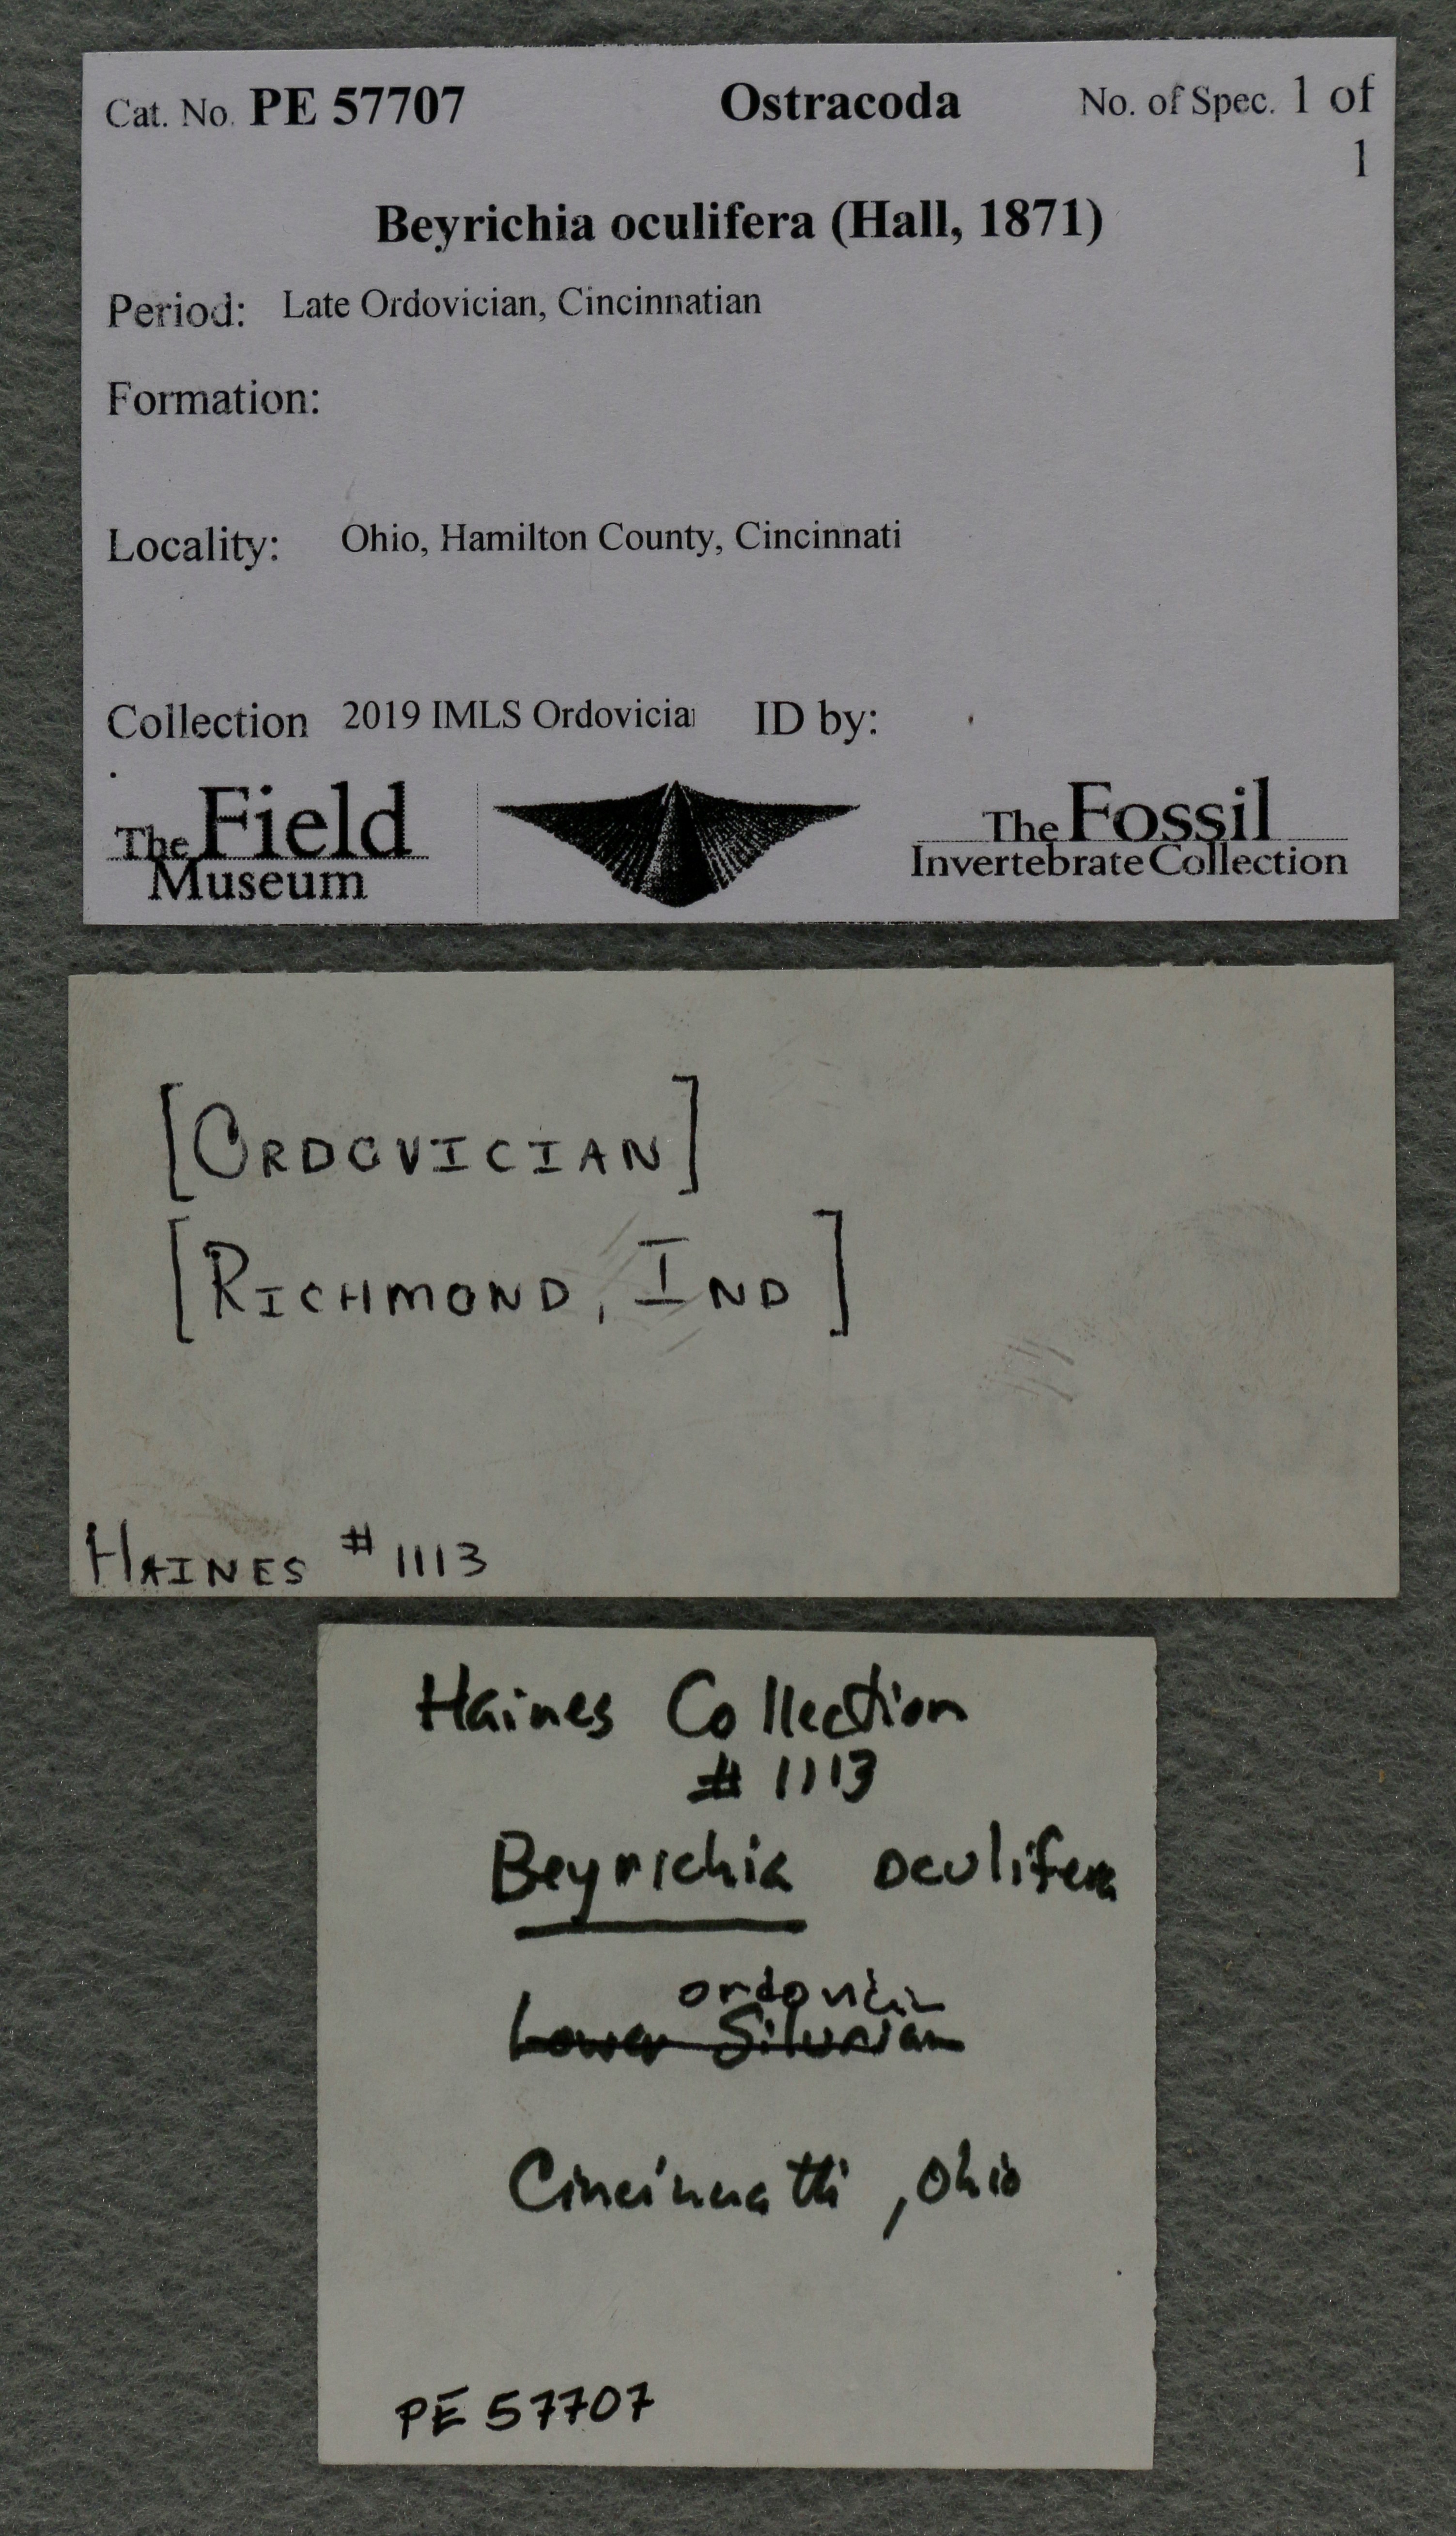 Cat. No. PE 57707 Ostracoda No. of Spec. 1 of
1
Beyrichia oculifera (Hall, 1871)
Period: Late Ordovician, Cincinnatian
Formation:
Locality: Ohio, Hamilton County, Cincinnati
Collection 2019 IMLS Ordovicia ID by:
The Field
Museum
The Fossil
Invertebrate Collection
[ORDOVICIAN]
[RICHMOND, IND]
HAINES #1113
Haines Collection
#1113
Beyrichia oculifera
ordovician
Lower Silurian
Cincinnatti, Ohio
PE 57707